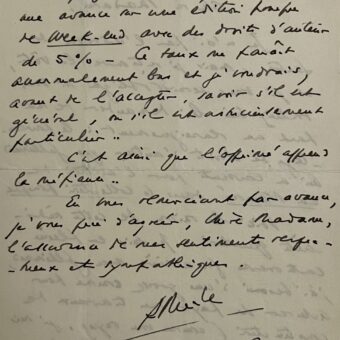 une avance sur une édition
de Week-end avec des droits d'auteur
de 5% – Ce taux me paraît
anormalement bas et je voudrais,
avant de l'accepter, savoir s'il est
général, ou s'il est
particulier..
C'est ainsi que l'affamé apprend
la méfiance..
En vous remerciant par avance,
je vous prie d'agréer, Chère Madame,
l'assurance de mes sentiments respec-
-tueux et sympathiques.